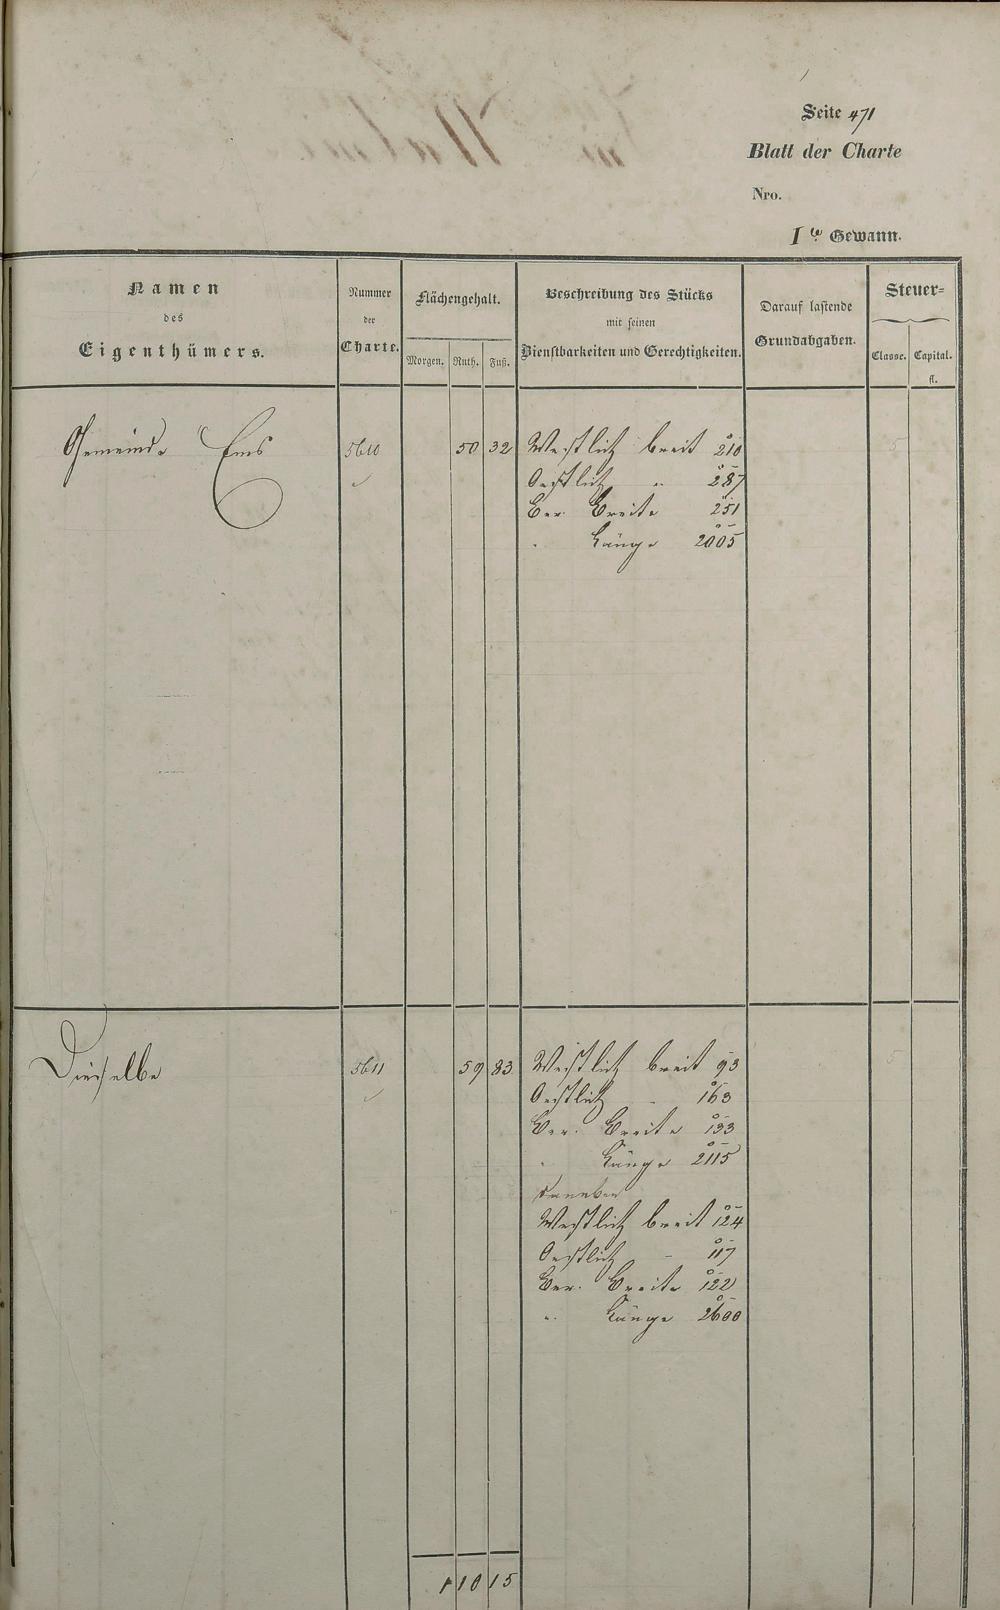 Seite 471
Blatt der Charte
Nro.
Ite Gewann.
Namen
des
Eigenthümers.
Nummer
der
Charte.
Flächengehalt.
Morgen. Ruth. Fuß.
Beschreibung des Stücks
mit seinen
Dienstbarkeiten und Gerechtigkeiten.
Darauf lastende
Grundabgaben.
Steuer=
Classe. Capital.
fl.
Gemeinde Ems 5610 50 32 Westlich breit 210 5
Oestlich " 287
Ber. Breite 251
" Länge 2005
Dieselbe 5611 59 83 Westlich breit 93 5
Oestlich " 163
Ber. Breite 133
" Länge 2115
daneben
Westlich breit 124
Oestlich " 117
Ber. Breite 122
" Länge 2600
1 10 15